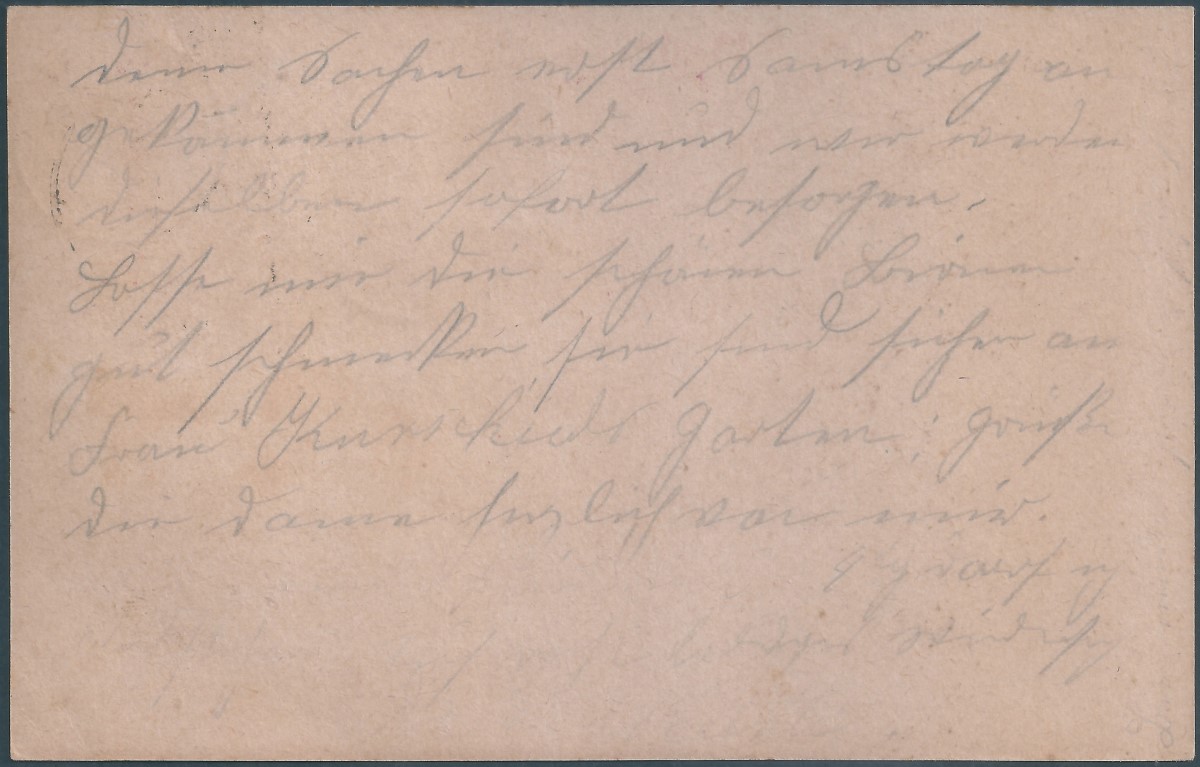 deine Sachen erst Samstag an
gekommen sind und wir werden
dieselben sofort besorgen.
Lasse mir die schönen Birnen
gut schmecken, sie sind sicher an
Frau Garten; grüße
die Dame herzlich von mir.